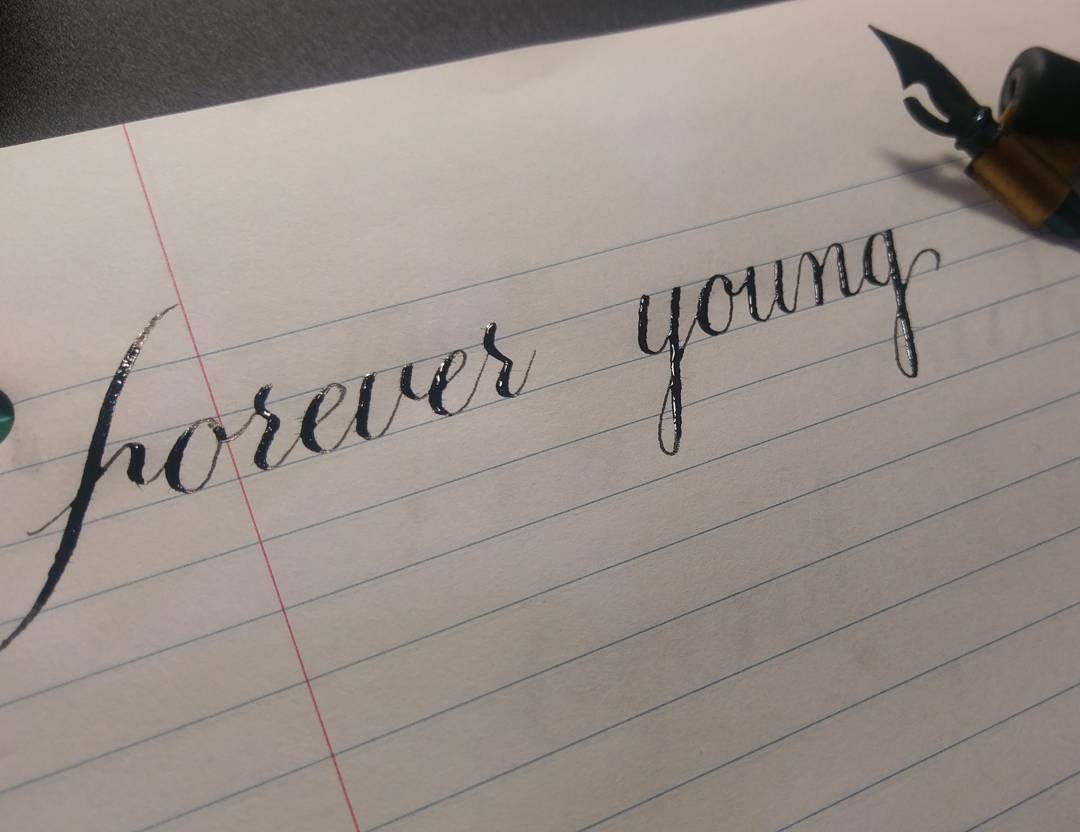 forever young